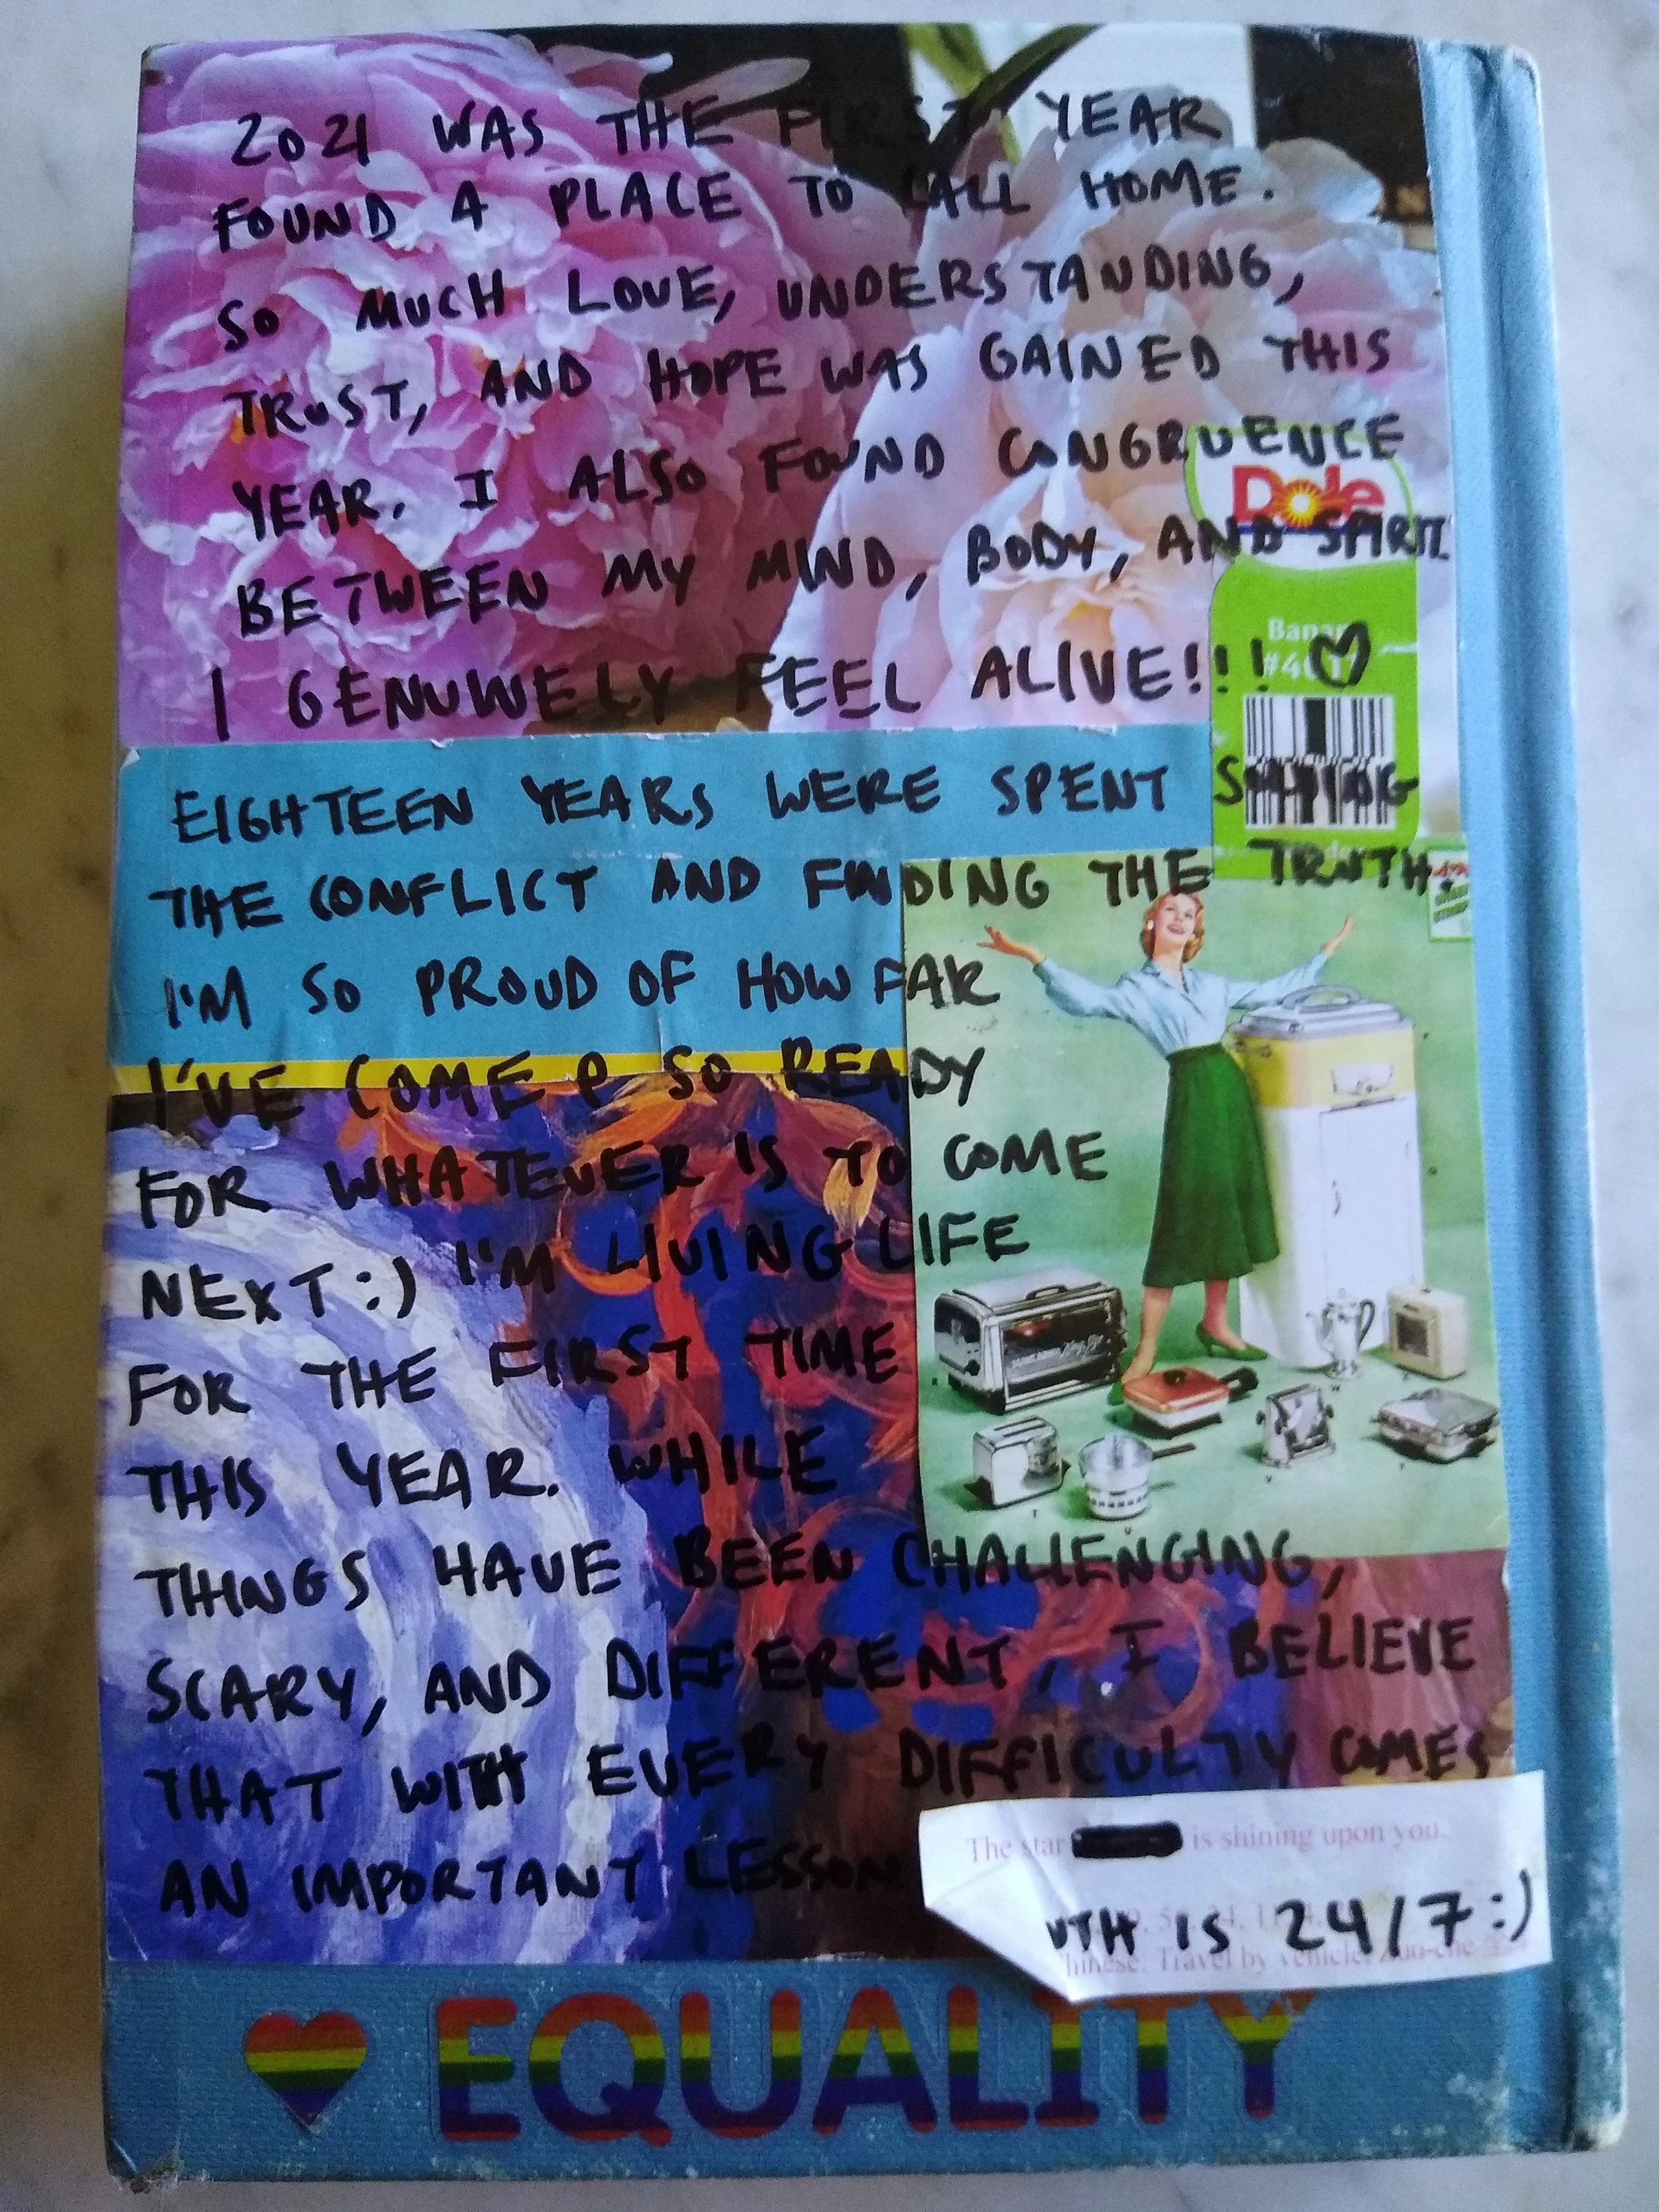 2021 WAS THE FIRST YEAR I
FOUND A PLACE TO CALL HOME.
SO MUCH LOVE, UNDERSTANDING,
TRUST, AND HOPE WAS GAINED THIS
YEAR. I ALSO FOUND CONGRUENCE
Dole
BETWEEN MY MIND, BODY, AND SPIRIT
I GENUINELY FEEL ALIVE!!! ♡
EIGHTEEN YEARS WERE SPENT
THE CONFLICT AND FINDING THE TRUTH.
I'M SO PROUD OF HOW FAR
I'VE COME & SO READY
FOR WHATEVER IS TO COME
NEXT :) I'M LIVING LIFE
FOR THE FIRST TIME
THIS YEAR. WHILE
THINGS HAVE BEEN CHALLENGING,
SCARY, AND DIFFERENT, I BELIEVE
THAT WITH EVERY DIFFICULTY COMES
AN IMPORTANT LESSON
The star is shining upon you.
UTH IS 24/7 :)
Travel by vehicle:
EQUALITY